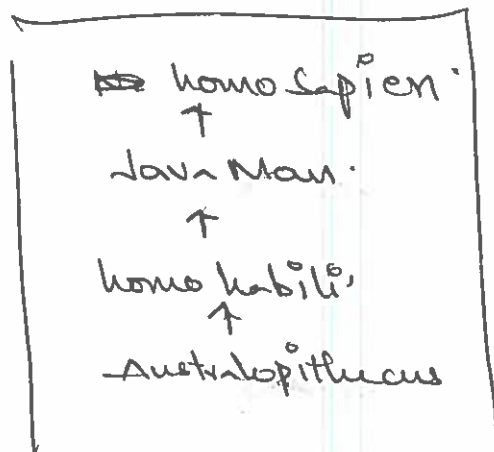 homo Sapien.
↑
Java Man.
↑
homo habilis
↑
Australopithucus